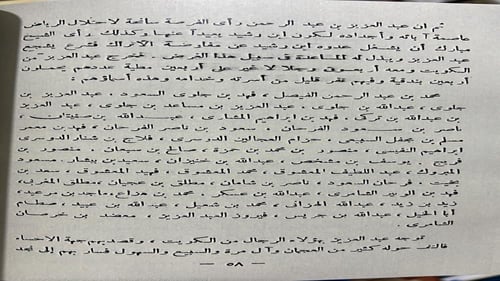 ثم ان عبد العزيز بن عبد الرحمن رأى الفرصة سانحة لاحتلال الرياض
عاصمة آبائه وأجداده لكون ابن رشيد بعيداً عنها وكذلك رأى الشيخ
مبارك أن يشغل عدوه ابن رشيد عن مفاوضة الاتراك فشرع يشجع
عبد العزيز ويبذل له المساعدة في مثل هذا الغرض، فخرج عبد العزيز من
الكويت ومعه أربعون رجلاً لا غير على أربعين مطية عددهم يحملون
أربعين بندقية وفيهم نفر قليل من أسرته وخدامه وهذه أسماؤهم :
محمد بن عبد الرحمن الفيصل ، فهد بن جلوى السعود ، عبد العزيز بن
جلوى ، عبد الله بن جلوى ، عبد العزيز بن مساعد بن جلوى ، عبد العزيز
بن عبدالله بن تركى . فهد بن ابراهيم المشارى ، عبدالله بن صنيتان ،
ناصر بن سعود الفرحان ، سعود بن ناصر الفرحان ، فهد بن معمر
مسلم بن مجفل السبيعى ، حزام العجالين الدوسرى ، فلاح بن شنار الدوسرى
ابراهيم النفيسى ، منصور بن محمد بن حمزة ، صالح بن سبعان ، منصور بن
فريج ، يوسف بن مشخص ، عبدالله بن خنيزان ، سعيد بن بيشان . مسعود
المبروك ، عبد اللطيف المعشوق ، محمد المعشوق ، فهيد المعشوق ، سعد بن
بخيت ، فرحان السعود ، ناصر بن شامان ، مطلق بن عجيان ، مطلق المغربى ،
فهد بن الوبير الشامرى ، عبدالله بن عسكر ، محمد بن هزاع ، ماجد بن مرعيد،
زيد بن زيد ، عبدالله الهزاف ، محمد بن شعيل ، عبد الله بن عبيد ، سطام
أبا الخيل ، عبدالله بن جريس ، فيروز العبد العزيز ، معضد بن خرصان
الشامرى .
توجه عبد العزيز بهؤلاء الرجال من الكويت ، وقصد بهم جهة الاحساء
فالتف حوله كثير من العجمان وآل مرة والسبيع والسهول فسار بهم إلى نجد
— ٥٨ —